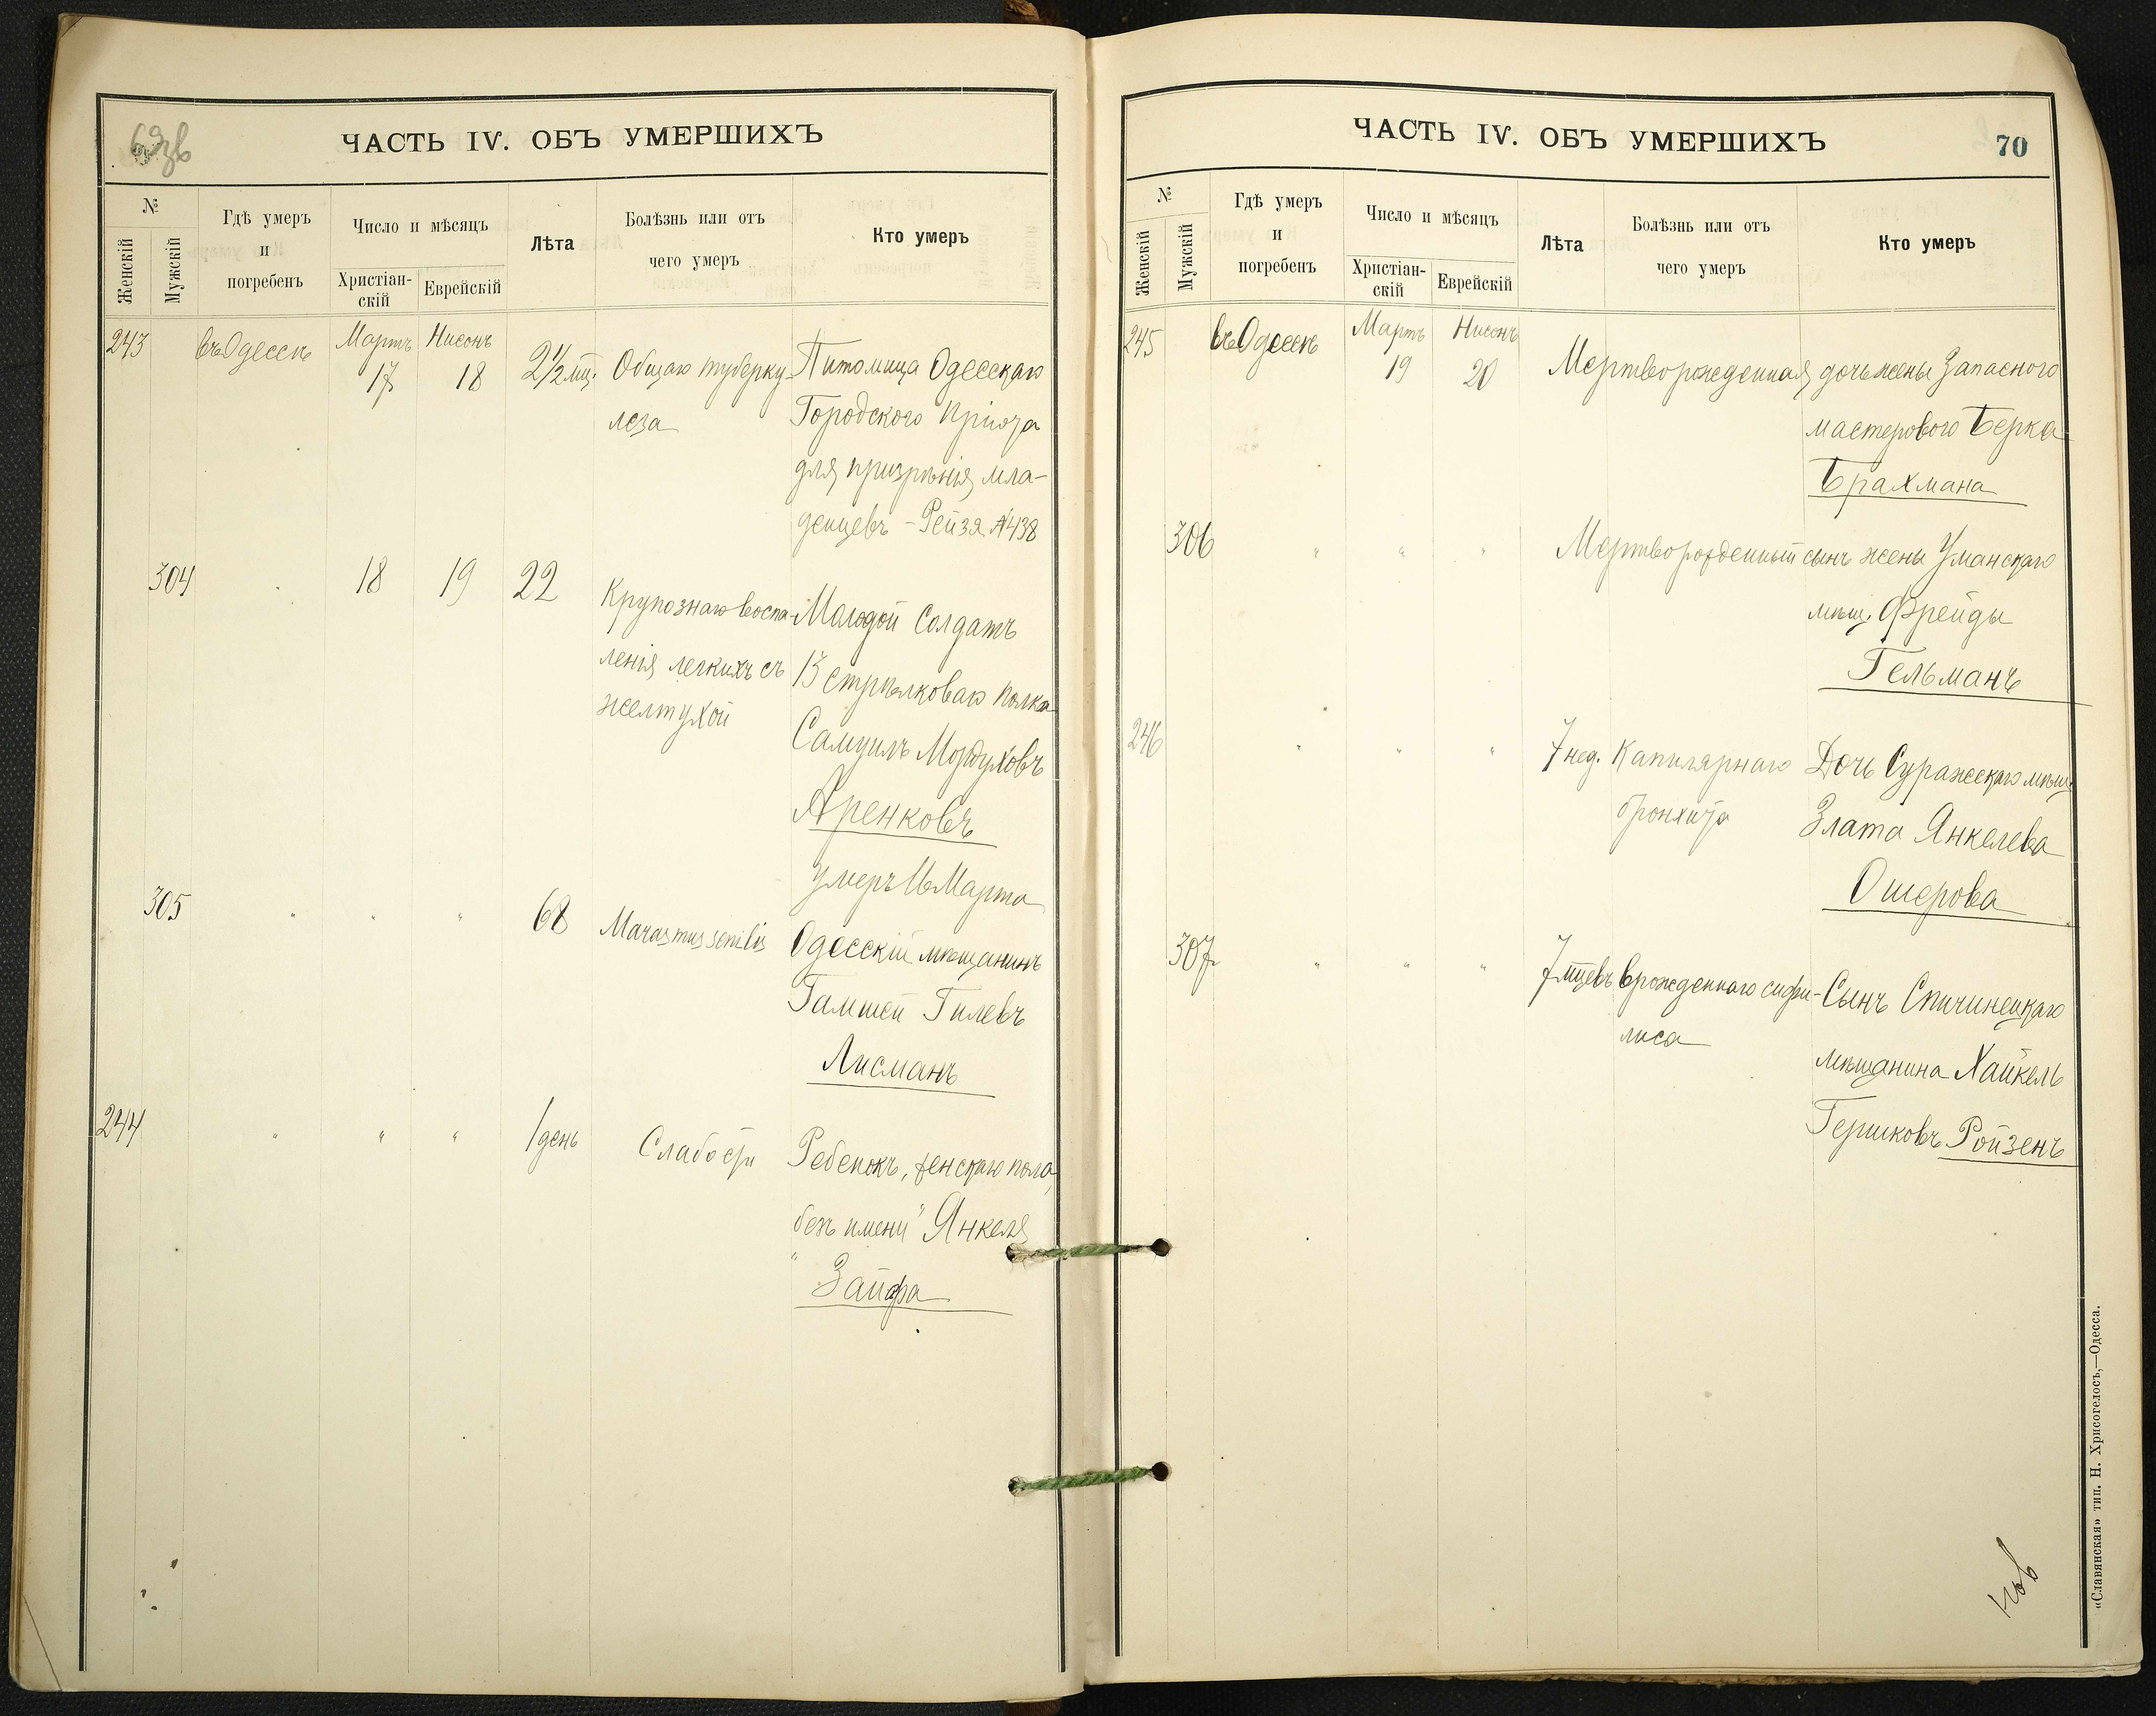 69 зв
ЧАСТЬ IV. ОБЪ УМЕРШИХЪ
№
Женскій
Мужскій
Гдѣ умеръ
и
погребенъ
Число и мѣсяцъ
Христіан-
скій
Еврейскій
Лѣта
Болѣзнь или отъ
чего умеръ
Кто умеръ
243 въ Одессѣ Мартъ 17 Нисонъ 18 2 1/2 мц. Общаго туберку-
леза
Питомица Одесскаго
Городского Пріюта
для призрѣнія мла-
денцевъ - Рейзя №438
304 18 19 22 Крупознаго воспа-
ленія легкихъ съ
желтухой
Молодой Солдатъ
13 стрѣлковаго полка
Самуилъ Мордуховъ
Аренковъ
умеръ 16 Марта
305 " " " 68 Marasmus senilis
Одесскій мѣщанинъ
Гамшей Гилевъ
Лисманъ
244 " " " 1 день Слабости
Ребенокъ, женскаго пола,
безъ имени" Янкеля
" Зайфа
ЧАСТЬ IV. ОБЪ УМЕРШИХЪ
70
№
Женскій
Мужскій
Гдѣ умеръ
и
погребенъ
Число и мѣсяцъ
Христіан-
скій
Еврейскій
Лѣта
Болѣзнь или отъ
чего умеръ
Кто умеръ
245 въ Одессѣ Мартъ 19 Нисонъ 20 Мертворожденная дочь жены Запасного
мастерового Берка
Брахмана
306 " " " Мертворожденный сынъ жены Уманскаго
мѣщ. Фрейды
Гельманъ
246 " " " 7 нед. Капилярнаго
бронхита
Дочь Суражскаго мѣщ.
Злата Янкелева
Ошерова
307 " " " 7 мцевъ Врожденнаго сифи-
лиса
Сынъ Спичинецкаго
мѣщанина Хайкель
Гершковъ Ройзенъ
«Славянская» тип. Н. Хрисогелосъ,—Одесса.